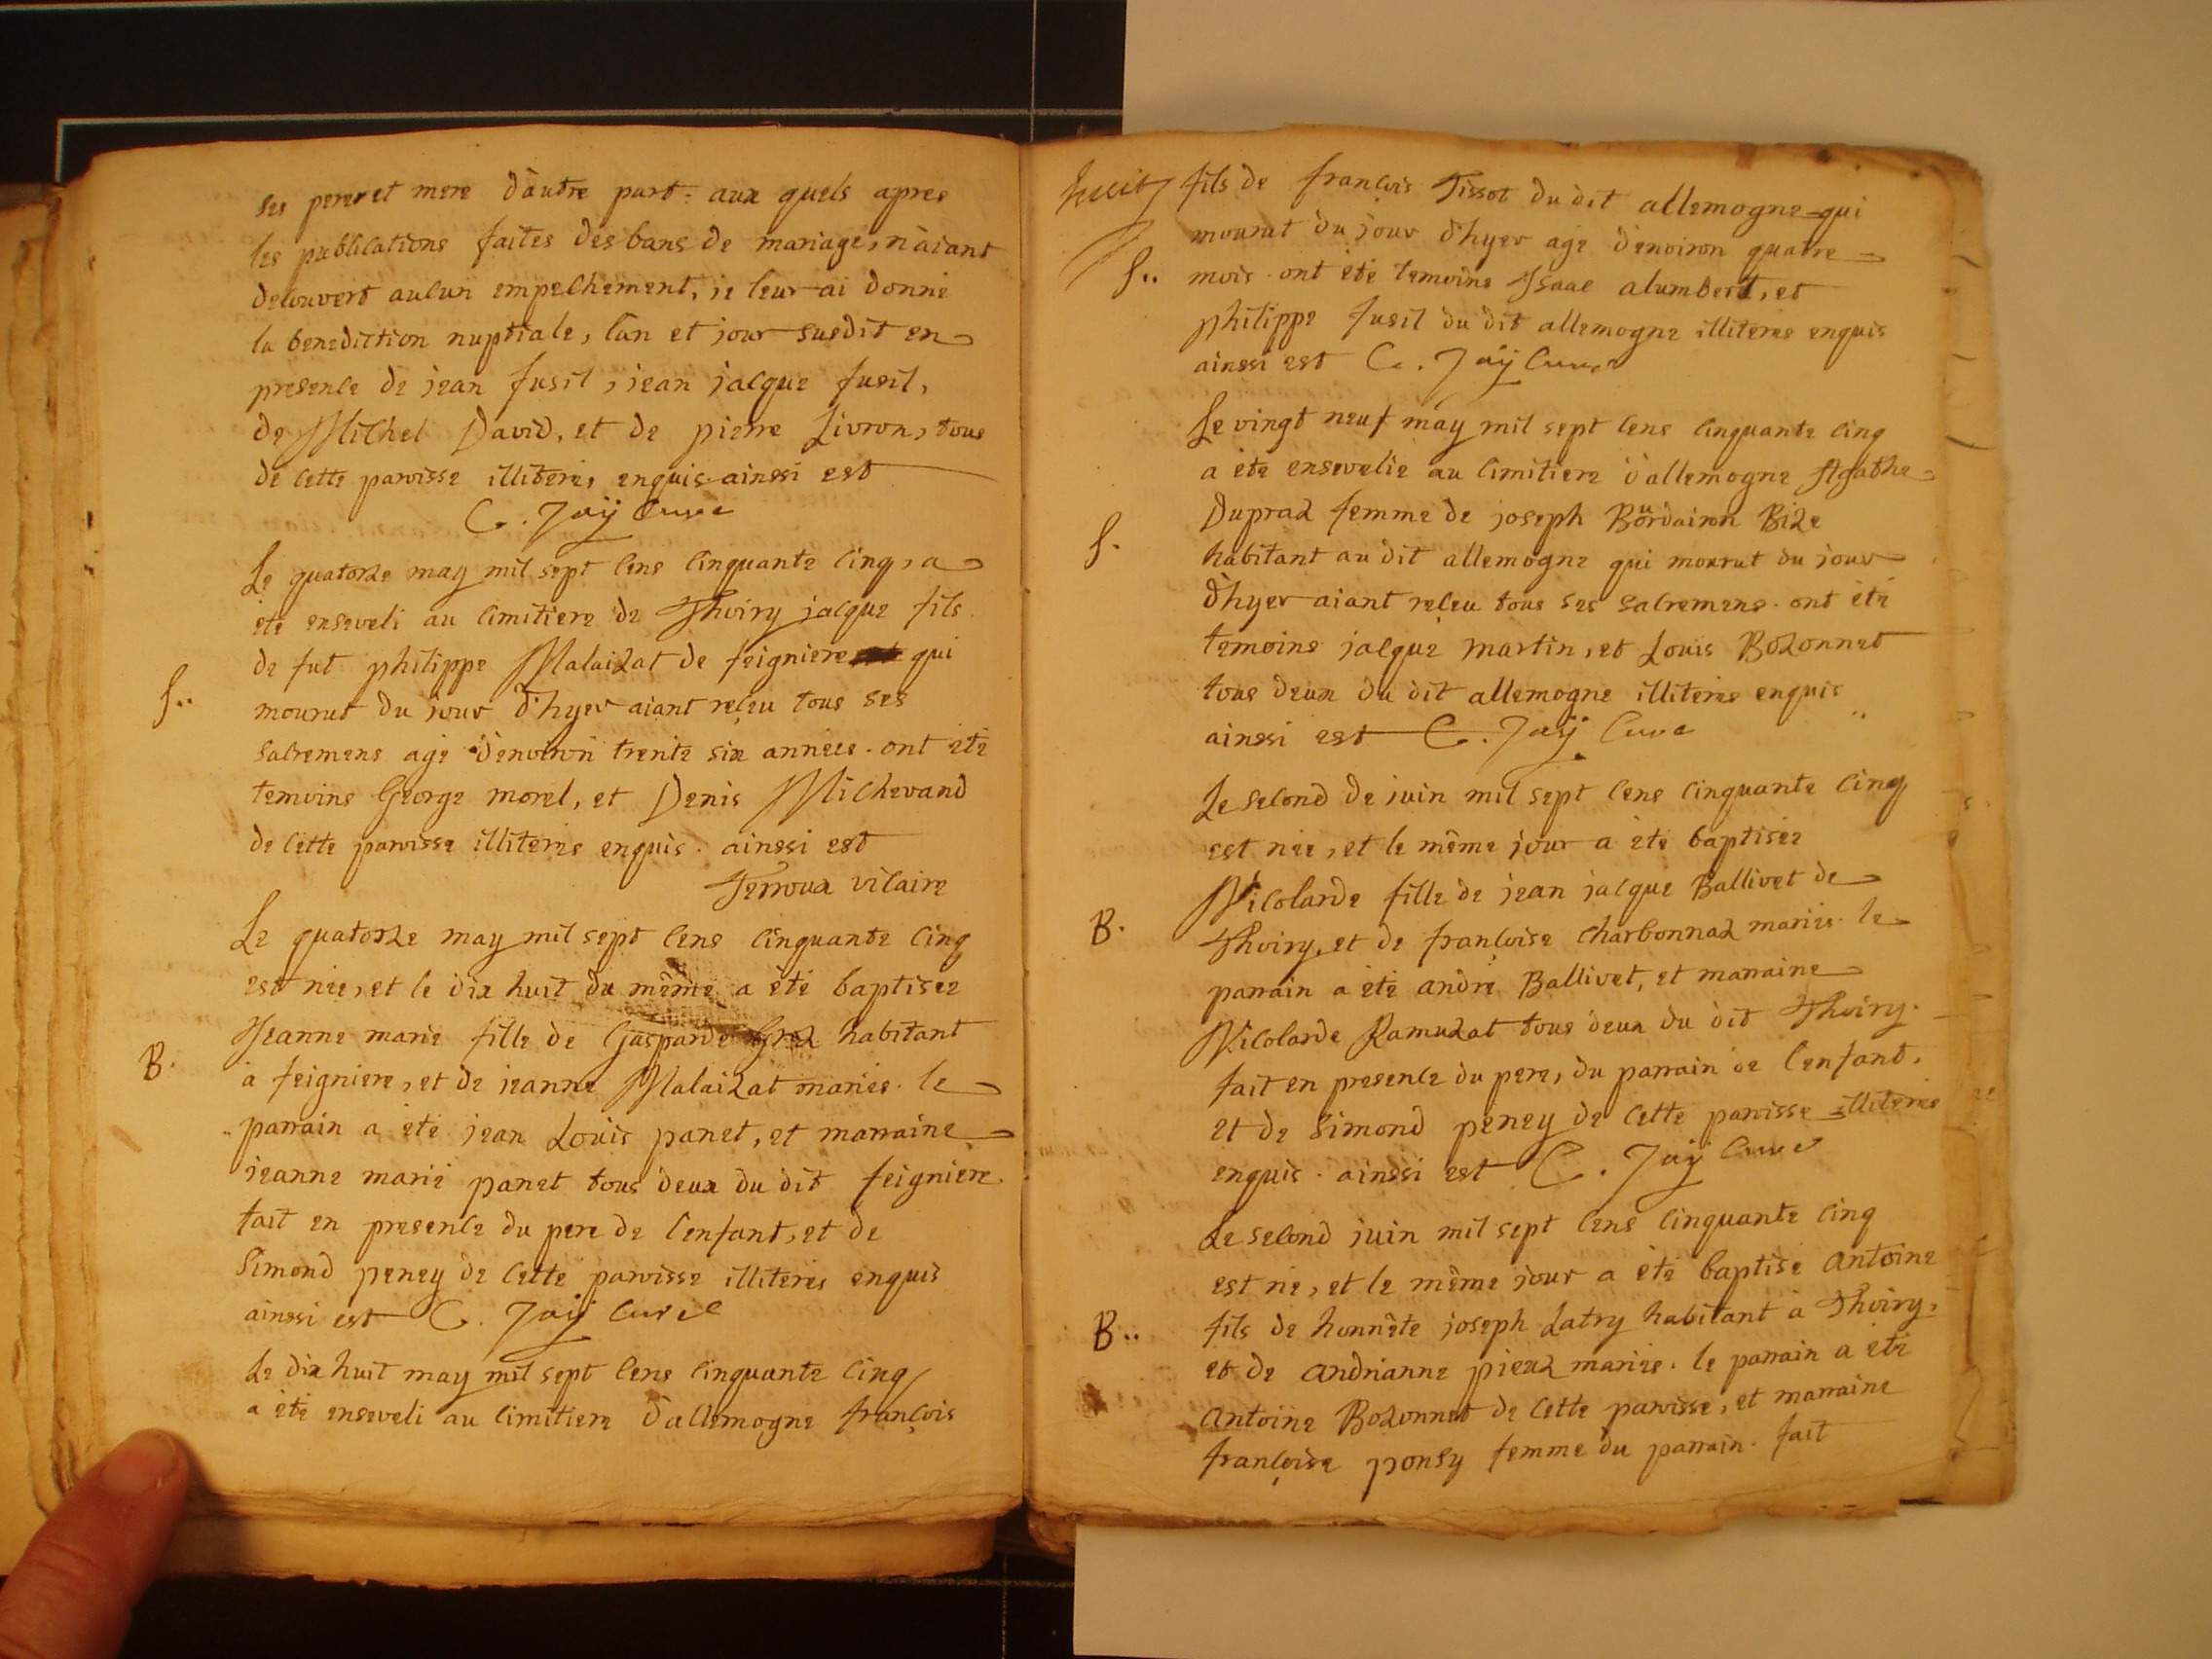 ses pere et mere d'autre part. aux quels apres
les publications faites des bans de mariage, n'aiant
decouvert aucun empechement, je leur ai donné
la benediction nuptiale, l'an et jour susdit en
presence de jean fusil, jean jacque fusil,
de Michel David, et de pierre Livron, tous
de cette paroisse illiteres enquis ainssi est
C. Jaÿ Curé
Le quatorze may mil sept cens cinquante cinq, a
été enseveli au cimitiere de Thoiry jacque fils
de fut philippe Malaizat de feigniere qui
S..
mourut du jour d'hyer aiant receu tous ses
sacremens agé d'environ trente six années. ont été
temoins George morel, et Denis Michevand
de cette paroisse illiteres enquis. ainssi est
Terroux vicaire
Le quatorze may mil sept cens cinquante cinq
est née, et le dix huit du même a été baptisée
Jeanne marie fille de Gasparde habitant
B.
a feigniere, et de jeanne Malaizat mariés. le
parrain a été jean Louis panet, et marraine
jeanne marie panet tous deux du dit feigniere
fait en presence du pere de l'enfant, et de
Simond peney de cette paroisse illiteres enquis
ainssi est C. Jaÿ Curé
Le dix huit may mil sept cens cinquante cinq
a été enseveli au cimitiere d'allemogne françois
fils de françois Tissot du dit allemogne qui
mourut du jour d'hyer agé d'environ quatre
S..
mois. ont été temoins Isaac alumbert, et
philippe fusil du dit allemogne illiteres enquis
ainssi est C. Jaÿ Curé
Le vingt neuf may mil sept cens cinquante cinq
a été ensevelie au cimitiere d'allemogne Agathe
Dupraz femme de joseph Bourdairon Bize
S.
habitant au dit allemogne qui mourut du jour
d'hyer aiant receu tous ses sacremens. ont été
temoins jacque martin, et Louis Bozonnet
tous deux du dit allemogne illiteres enquis
ainssi est C. Jaÿ Curé
Le second de juin mil sept cens cinquante cinq
est née, et le même jour a été baptisée
Nicolarde fille de jean jacque Ballivet de
B.
Thoiry, et de françoise charbonnaz mariés. le
parrain a été andré Ballivet, et marraine
Nicolarde Ramuzat tous deux du dit Thoiry.
fait en presence du pere, du parrain de l'enfant,
et de Simond peney de cette paroisse illiteres
enquis. ainssi est C. Jaÿ Curé
Le second juin mil sept cens cinquante cinq
est né, et le même jour a été baptisé antoine
B..
fils de honnête joseph Latry habitant a Thoiry,
et de andrianne pieuz mariés. le parrain a été
antoine Bozonnet de cette paroisse, et marraine
françoise ponsy femme du parrain. fait